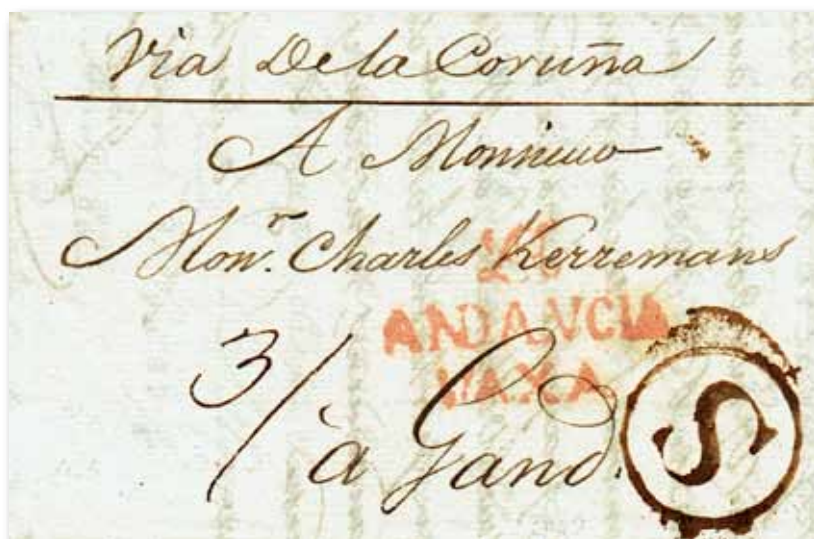 Via De la Coruña
A Monsieur
Mon.r Charles Kerremans
ANDALVCIA
VAXA
3/
à Gand.
S